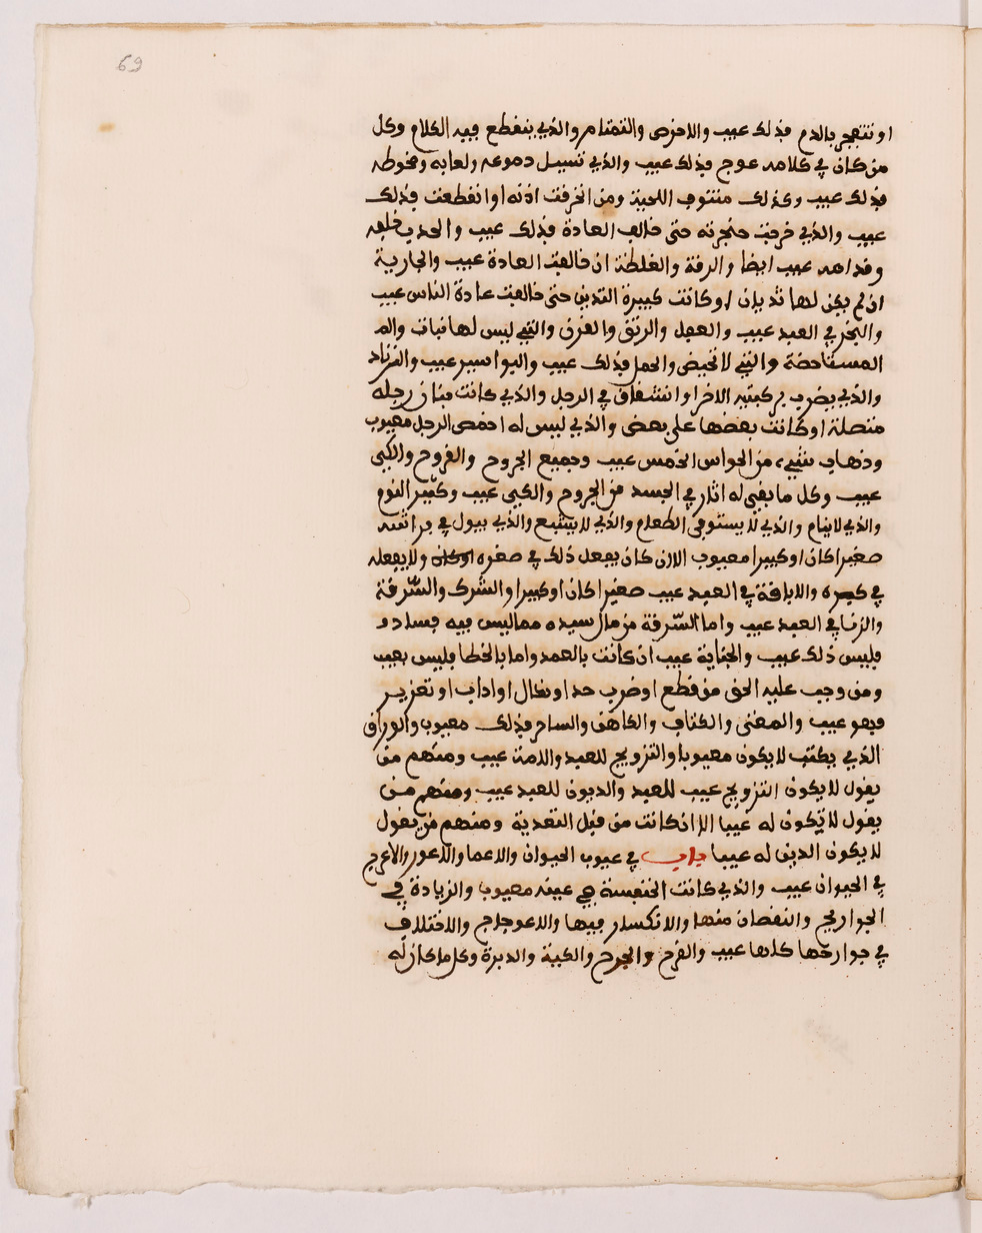 69
او تنفجر بالدم فذلك عيب والاخرص والتمتام والذي ينقطع فيه الكلام وكل
من كان في كلامه عوج فذلك عيب والذي تسيل دموعه ولعابه ومخوطه
فذلك عيب وكذلك منتوف اللحية ومن انخرقت اذنه او انقطعت فذلك
عيب والذي خرجت حنجرته حتى خالف العادة فذلك عيب والحدب خلفه
وقدامه عيب ايضا والرقة والغلظة ان خالفت العادة عيب والجارية
ان لم يكن لها ثديان او كانت كبيرة الثدين حتى خالفت عادة الناس عيب
والبخر في العبد عيب والعفل والرتق والقرن والتي ليس لها نبات والم
المستحاضة والتي لا تحيض والحمل فذلك عيب والبواسير عيب والفزناد
والذي يضرب بركبتيه الاخرا وانشقاق في الرجل والذي كانت بنان رجله
متصلة او كانت بعضها على بعض والذي ليس له اخمص الرجل معيوب
وذهاب شيء من الحواس الخمس عيب وجميع الجروح والقروح والكي
عيب وكل ما بقي له اثار في الجسد من الجروح والكي عيب وكثير النوم
والذي لا ينام والذي لا يستوفى الطعام والذي لا يشبع والذي يبول في فراشه
صغيرا كان او كبيرا معيوب الا ان كان يفعل ذلك في صغره ولا يفعله
في كبره والاباقة في العبد عيب صغيرا كان او كبيرا والشرك والسّرقة
والزنا في العبد عيب واما السّرقة من مال سيده مما ليس فيه فساد
فليس ذلك عيب والجناية عيب ان كانت بالعمد واما بالخطا فليس بعيب
ومن وجب عليه الحق من قطع او ضرب حد او نكال او اداب او تعزير
فهو عيب والمغني والكتاف والكاهن والساحر فذلك معيوب والوراق
الذي يكتب لا يكون معيوبا والتزويج للعبد والامة عيب ومنهم من
يقول لا يكون التزويج عيب للعبد والديون للعبد عيب ومنهم من
يقول لا يكون له عيبا الا ان كانت من قبل التعدية ومنهم من يقول
لا يكون الدين له عيبا باب في عيوب الحيوان والاعما والاعور والاعرج
في الحيوان عيب والذي كانت الخنفسة في عينه معيوب والزيادة في
الجوارح والنقصان منها والانكسار فيها والاعوجاج والاختلاف
في جوارحها كلها عيب والقرح والجرح والكية والدبرة وكل ما كان له